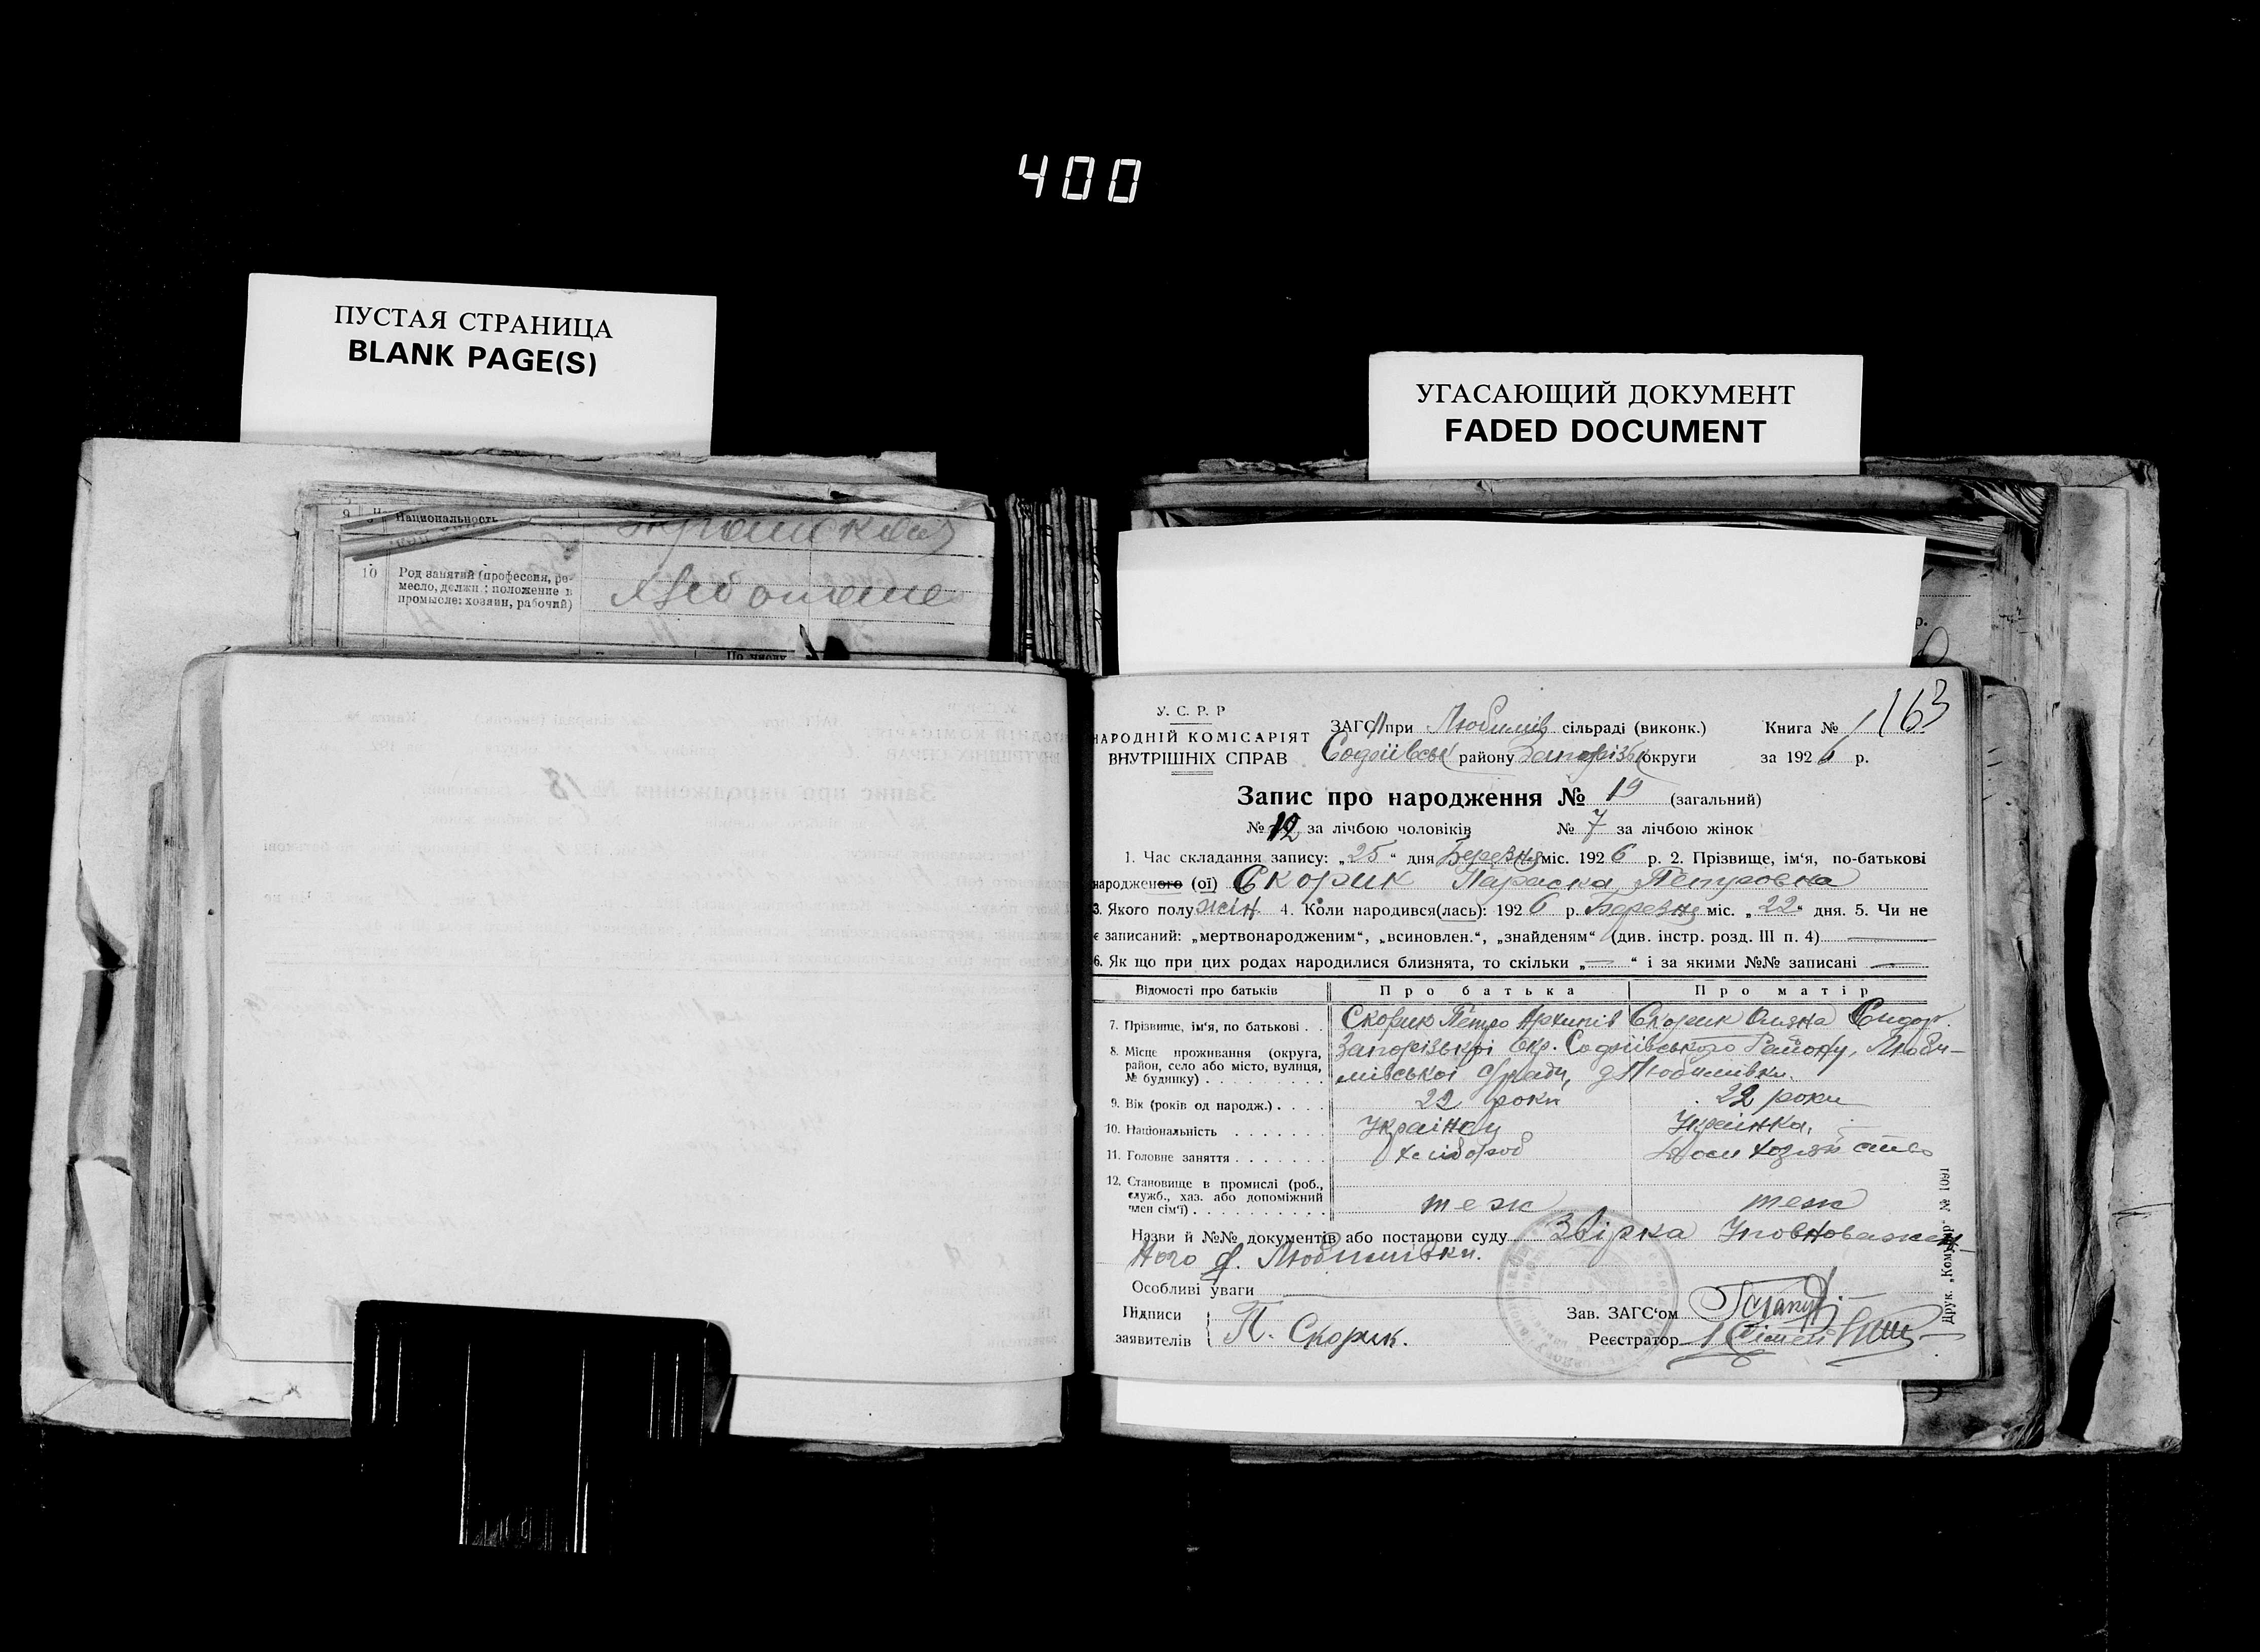 400
ПУСТАЯ СТРАНИЦА
BLANK PAGE(S)
УГАСАЮЩИЙ ДОКУМЕНТ
FADED DOCUMENT
9 Национальность
10 Род занятий (профессия, ре-
месло, должн.; положение в
промысле: хозяин, рабочий)
По числу
163
У. С. Р. Р
НАРОДНІЙ КОМІСАРІЯТ
ВНУТРІШНІХ СПРАВ
ЗАГС при Любимів сільраді (виконк.) Книга № 1
Софіївськ району Запорізьк округи за 1926 р.
Запис про народження № 19 (загальний)
№ 12 за лічбою чоловіків № 7 за лічбою жінок
1. Час складання запису: „25“ дня Березня міс. 1926 р. 2. Прізвище, ім‘я, по-батькові
народженого (ої) Скорик Параска Петровна
3. Якого полу жін. 4. Коли народився(лась): 1926 р. Березня міс. „22“ дня. 5. Чи не
є записаний: „мертвонародженим“, „всиновлен.“, „знайденям“ (див. інстр. розд. III п. 4) —
6. Як що при цих родах народилися близнята, то скільки „—“ і за якими №№ записані —
Відомості про батьків Про батька Про матір
7. Прізвище, ім‘я, по батькові . . Скорик Петро Архипів Скорик Оляна Сидор.
8. Місце проживання (округа,
район, село або місто, вулиця,
№ будинку) . . . . . . . . . Запорізької Окр. Софіївського Району, Люби-
мівської с/ради, д. Любимівки.
9. Вік (років од народж.) . . . . 22 роки 22 роки
10. Національність . . . . . . . Українец Українка,
11. Головне заняття . . . . . . . Хлібороб Дом хозяйство
12. Становище в промислі (роб.,
служб., хаз. або допоміжний
член сім‘ї) . . . . . . . . . . теж теж
Назви й №№ документів або постанови суду Звірка Уповноважен-
ного д. Любимівки.
Особливі уваги —
Підписи
заявителів П. Скорик.
Зав. ЗАГС‘ом
Реєстратор
Друк. „Комунар“ № 1091
Запис про народження № 18